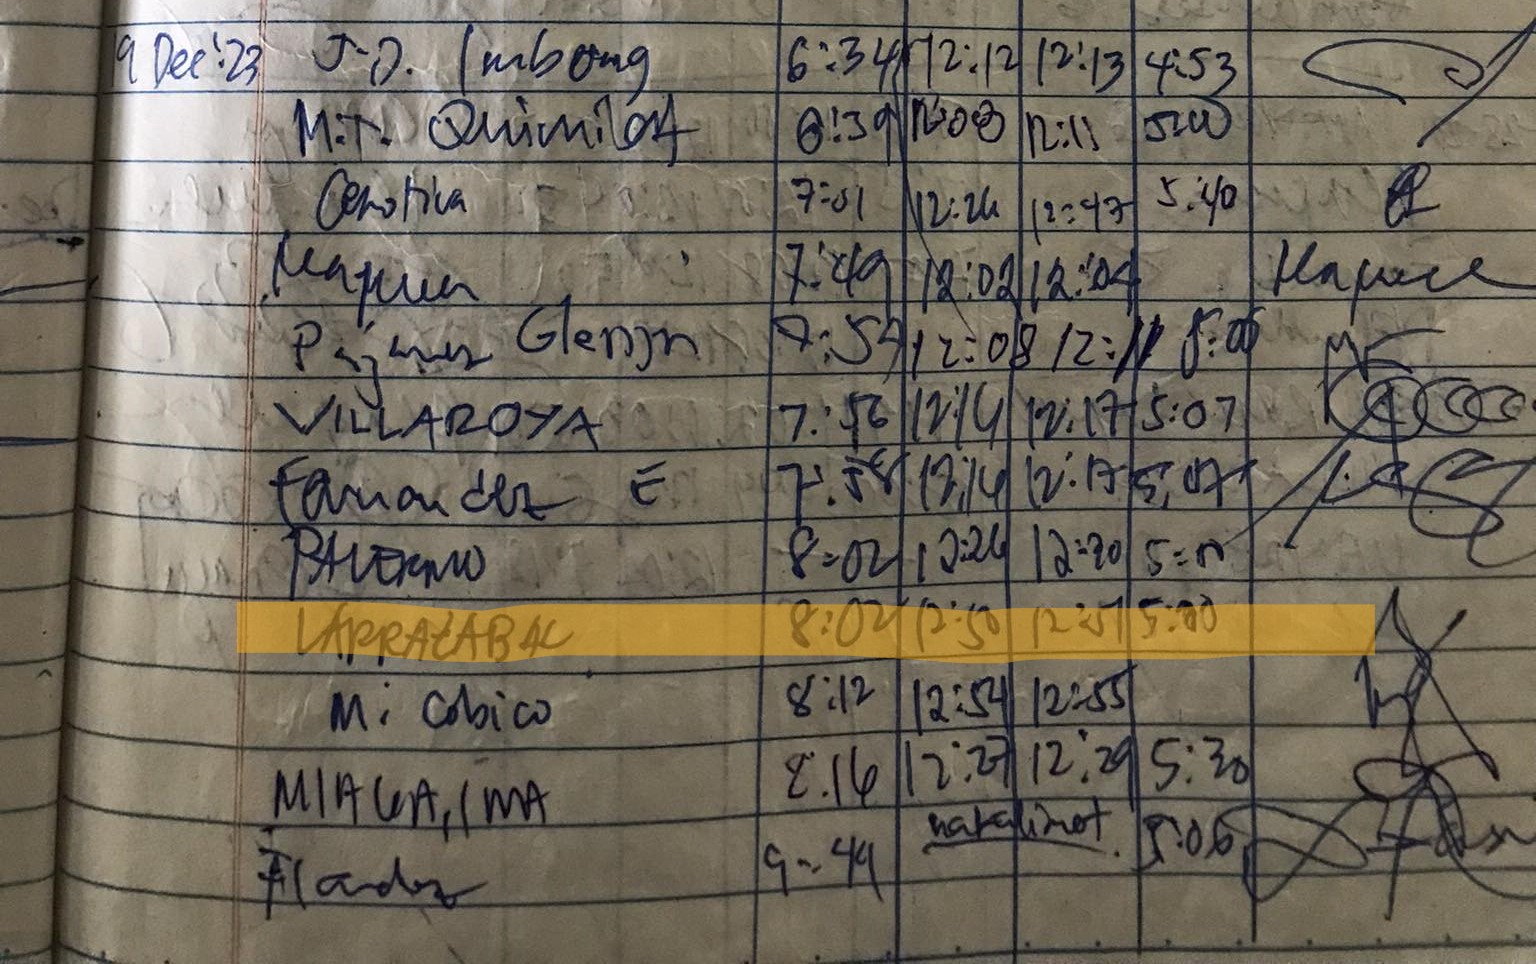 9 Dec '23 J.D. Imbong 6:34 12:12 12:13 4:53
M.T. Quimilat 6:39 12:08 12:11 5:00
7:01 12:26 12:47 5:40
7:49 12:02 12:04
Glennjn 7:54 12:08 12:11 5:00
VILLAROYA 7:56 12:14 12:17 5:07
Fernandez E 7:58 12:14 12:17 5:07
PALERMO 8:02 12:26 12:30
LARRAZABAL 8:02 12:50 12:51 5:00
M. Cobico 8:12 12:54 12:55
MIAGA, IMA 8:16 12:27 12:29 5:30
9:49 nakalimot 5:06